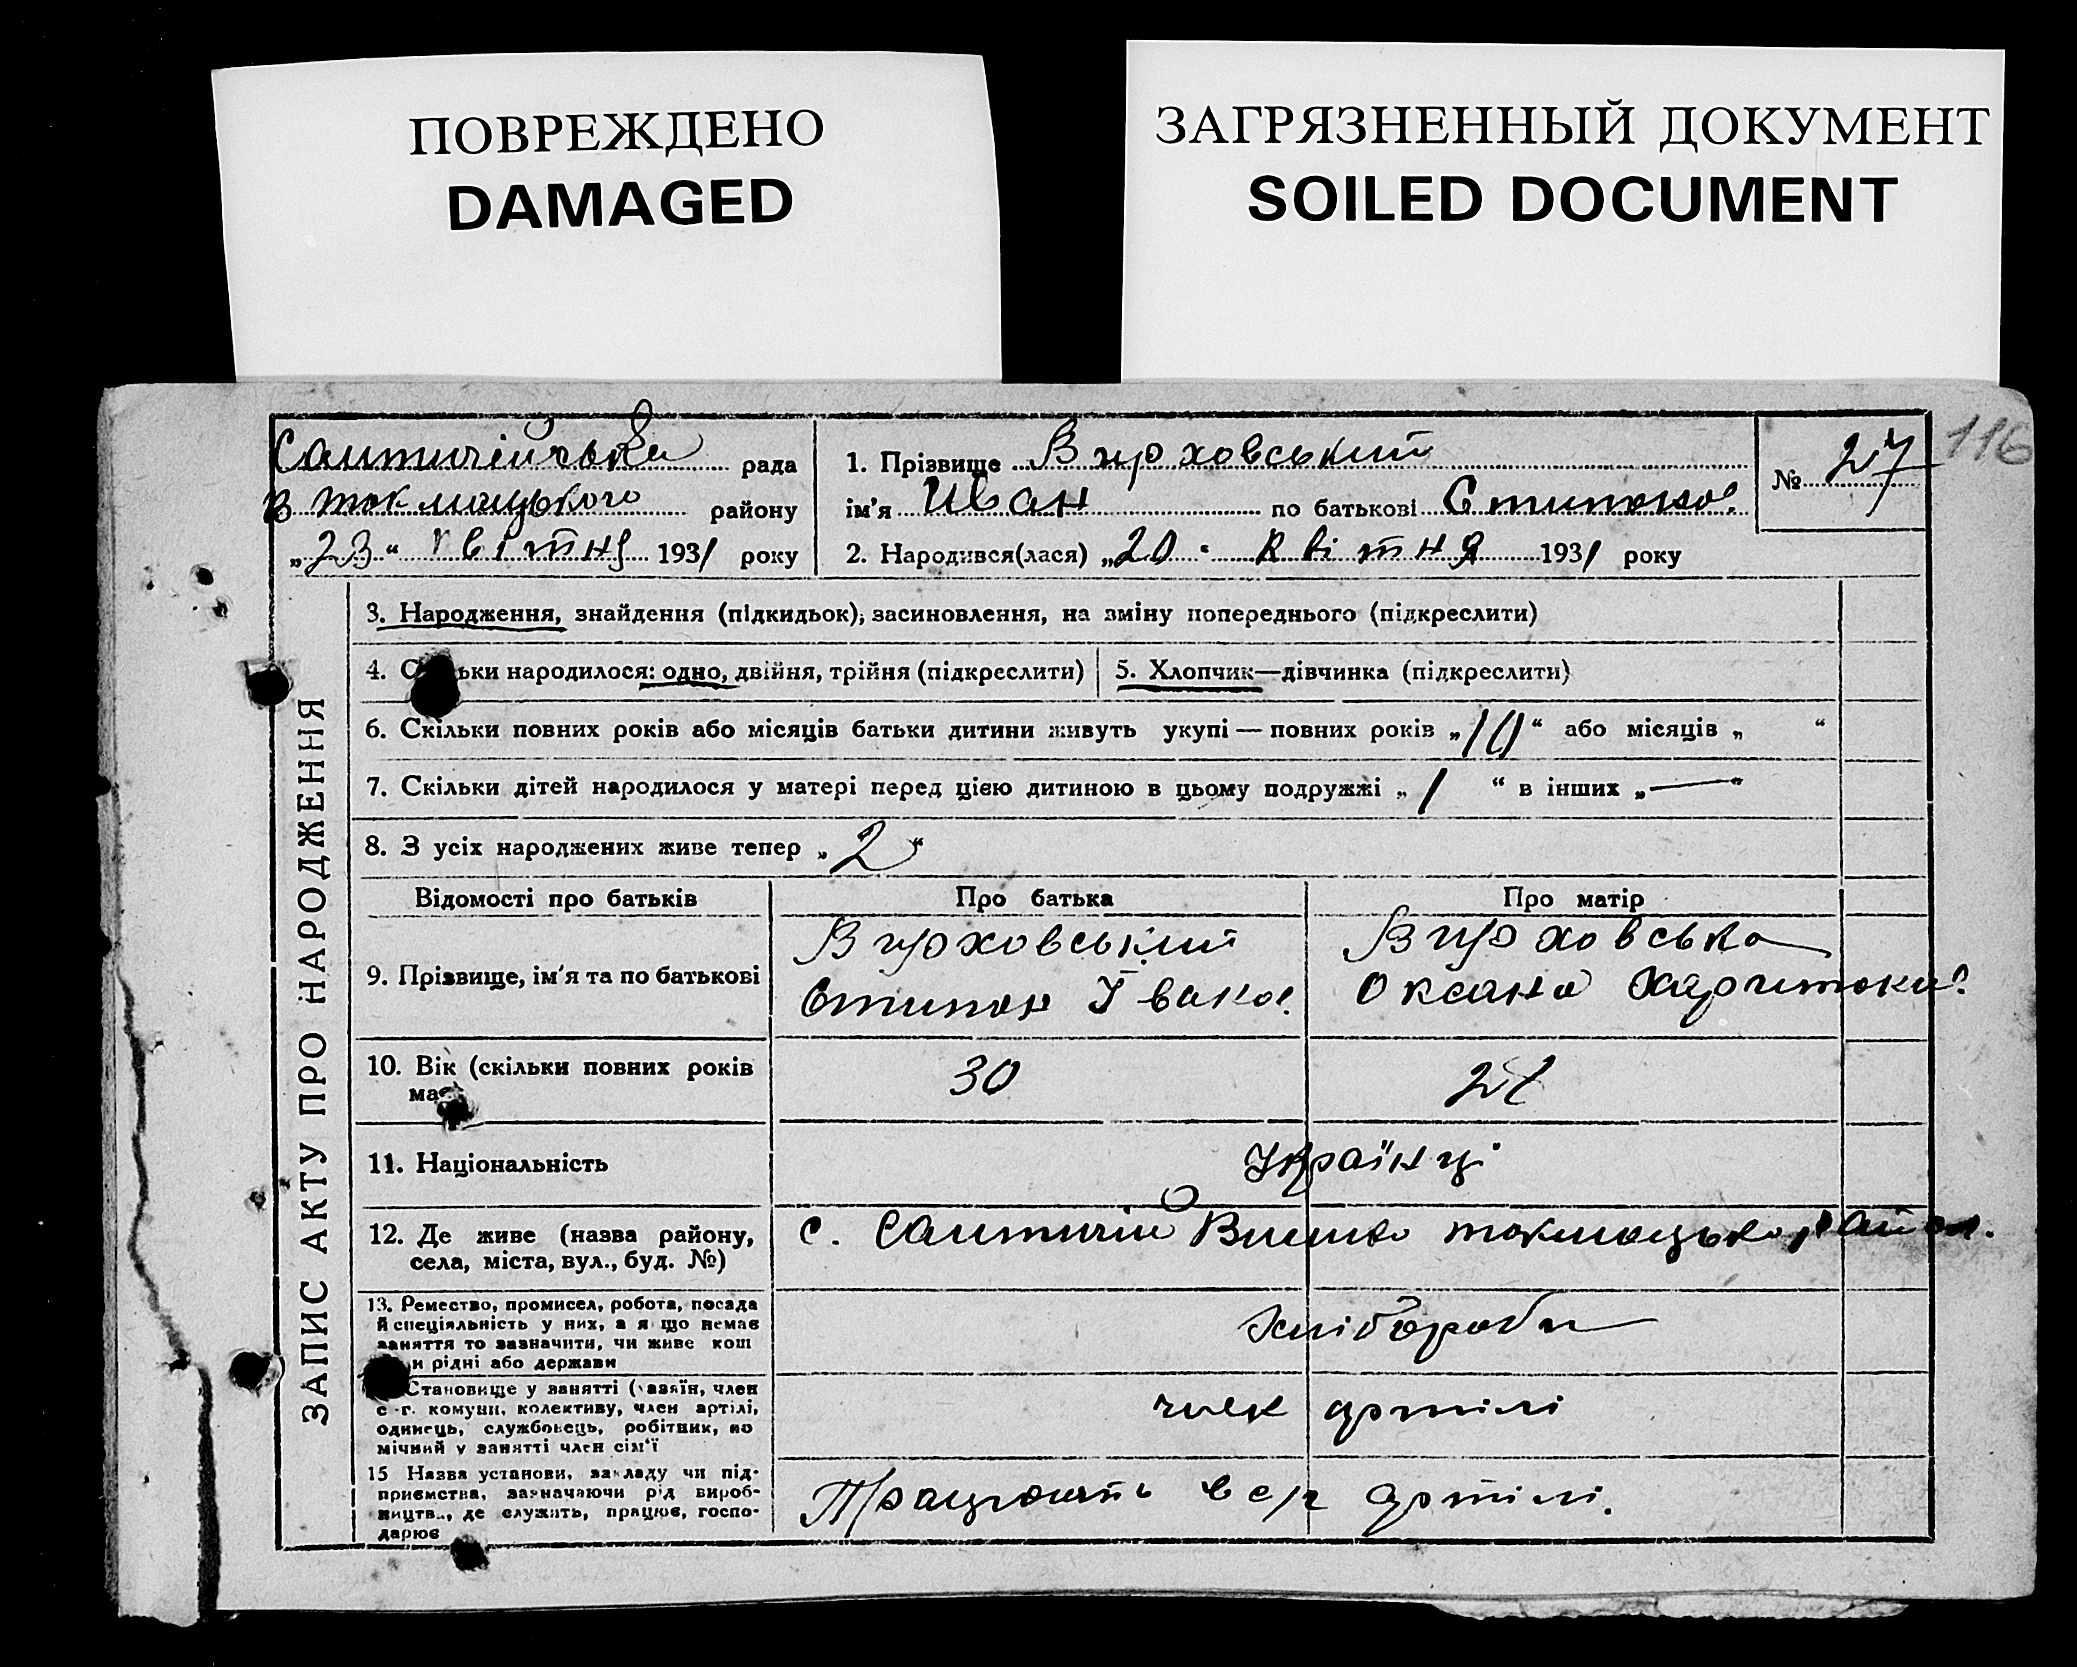 ПОВРЕЖДЕНО
DAMAGED
ЗАГРЯЗНЕННЫЙ ДОКУМЕНТ
SOILED DOCUMENT
116
рада
В токмацького району
„23“ квітня 1931 року
1. Прізвище
ім'я Иван по батькові Степанов.
2. Народився(лася) „20“ квітня 1931 року
№ 27
ЗАПИС АКТУ ПРО НАРОДЖЕННЯ
3. Народження, знайдення (підкидьок), засиновлення, на зміну попереднього (підкреслити)
4. С ьки народилося: одно, двійня, трійня (підкреслити)
5. Хлопчик—дівчинка (підкреслити)
6. Скільки повних років або місяців батьки дитини живуть укупі — повних років „10“ або місяців „ “
7. Скільки дітей народилося у матері перед цією дитиною в цьому подружжі „1“ в інших „—“
8. З усіх народжених живе тепер „2“
Відомості про батьків Про батька Про матір
9. Прізвище, ім'я та по батькові
Степан Іванов.
Оксана Харитонов.
10. Вік (скільки повних років
має
30
11. Національність
Українці
12. Де живе (назва району,
села, міста, вул., буд. №)
с. токмацько район.
13. Ремество, промисел, робота, посада
й спеціяльність у них, а я що немає
заняття то зазначити, чи живе кош
и рідні або держави
Хлібороби
Становище у занятті ( азяїн, член
с-г. комуни, колективу, член артілі,
одинець, службовець, робітник, по
мічний у занятті член сім'ї
член артілі
15 Назва установи, закладу чи під-
приємства, зазначаючи рід вироб-
ництв.., де служить, працює, госпо-
дарює
Працюють в с/г артілі.